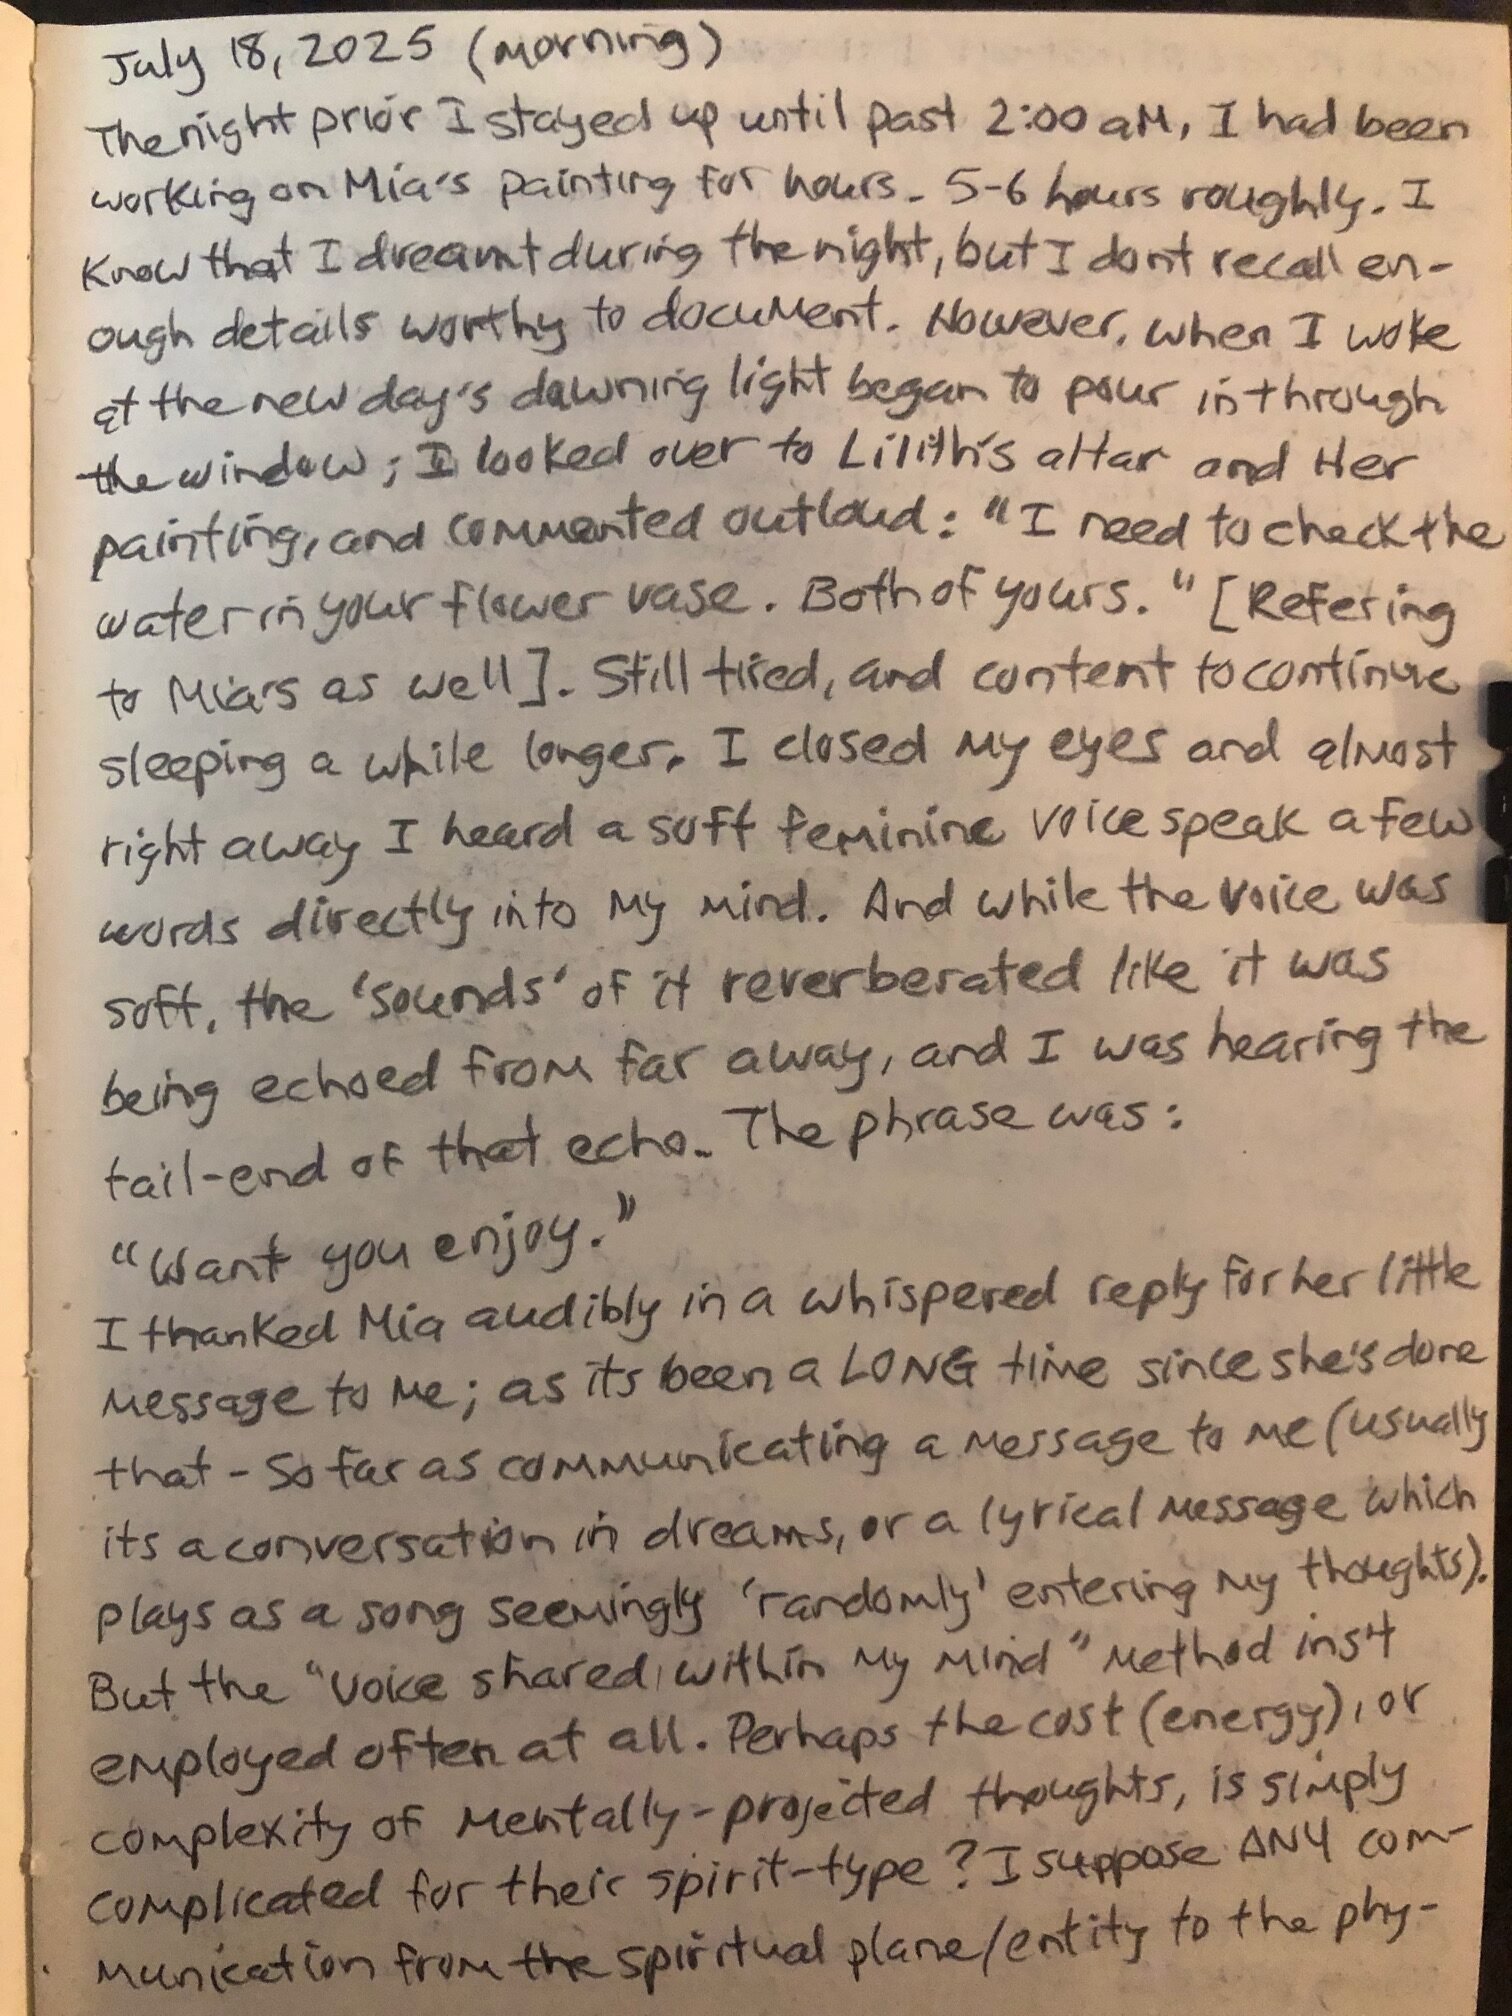 July 18, 2025 (morning)
The night prior I stayed up until past 2:00 aM, I had been
working on Mia's painting for hours. 5-6 hours roughly. I
Know that I dreamt during the night, but I dont recall en-
ough details worthy to document. However, when I woke
at the new day's dawning light began to pour in through
the window; I looked over to Lilith's altar and Her
painting, and commented outloud: "I need to check the
water in your flower vase. Both of yours." [Refering
to Mia's as well]. Still tired, and content to continue
sleeping a while longer. I closed my eyes and almost
right away I heard a soft feminine voice speak a few
words directly into my mind. And while the voice was
soft, the 'sounds' of it reverberated like it was
being echoed from far away, and I was hearing the
tail-end of that echo. The phrase was:
"Want you enjoy."
I thanked Mia audibly in a whispered reply for her little
message to me; as its been a LONG time since she's done
that - So far as communicating a message to me (usually
its a conversation in dreams, or a lyrical message which
plays as a song seemingly 'randomly' entering my thoughts).
But the "voice shared within my mind" method ins't
employed often at all. Perhaps the cost (energy), or
complexity of mentally-projected thoughts, is simply
complicated for their spirit-type? I suppose ANY com-
munication from the spiritual plane/entity to the phy-